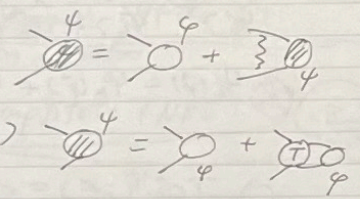 ψ = φ + ψ
) ψ = φ + T φ